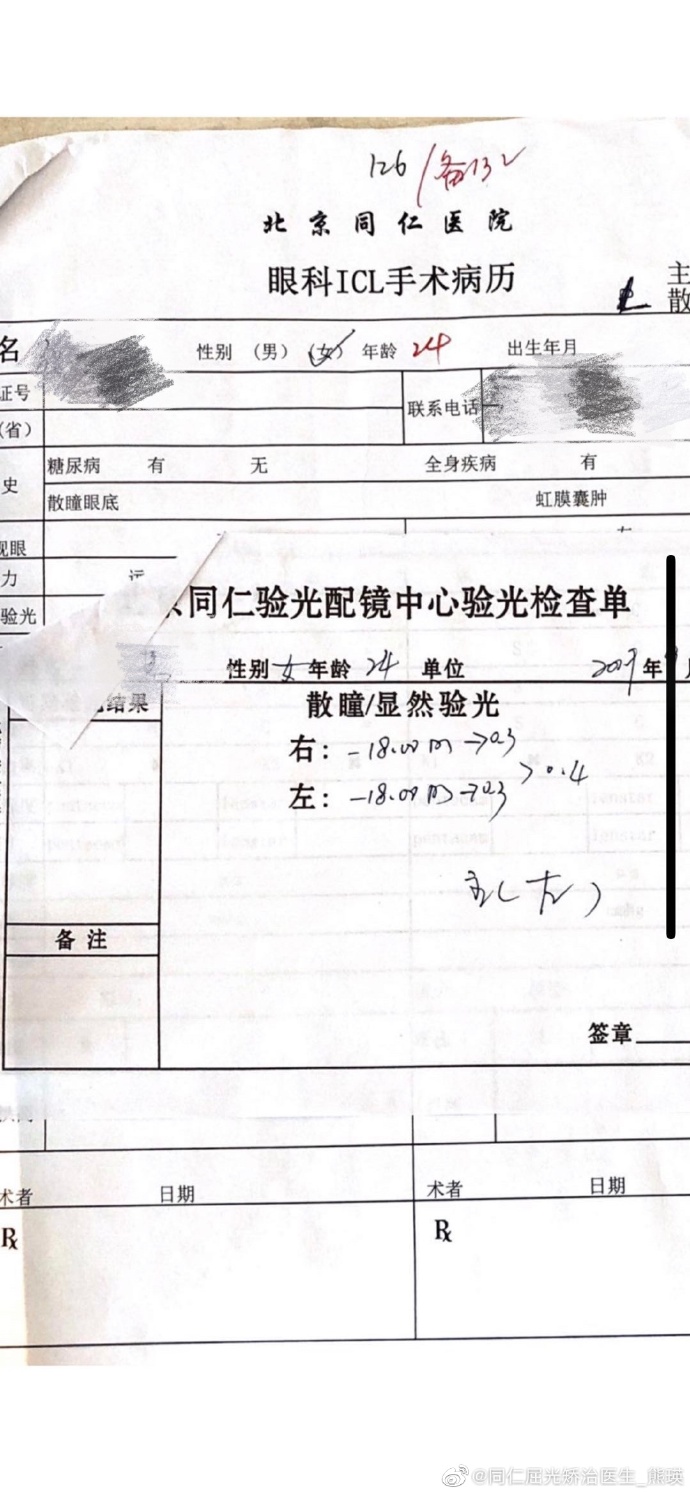 126/备13
北京同仁医院
眼科ICL手术病历
主
散
名 性别 (男) (女) 年龄 24 出生年月
证号
联系电话
(省)
史 糖尿病 有 无 全身疾病 有
散瞳眼底 虹膜囊肿
视眼
力
验光
京同仁验光配镜中心验光检查单
性别 女 年龄 24 单位 2019年
结果
散瞳/显然验光
右: -18.00 →0.3
左: -18.00 →0.3
>0.4
主(右)
备注
签章
术者 日期 术者 日期
℞ ℞
@同仁屈光矫治医生_熊瑛